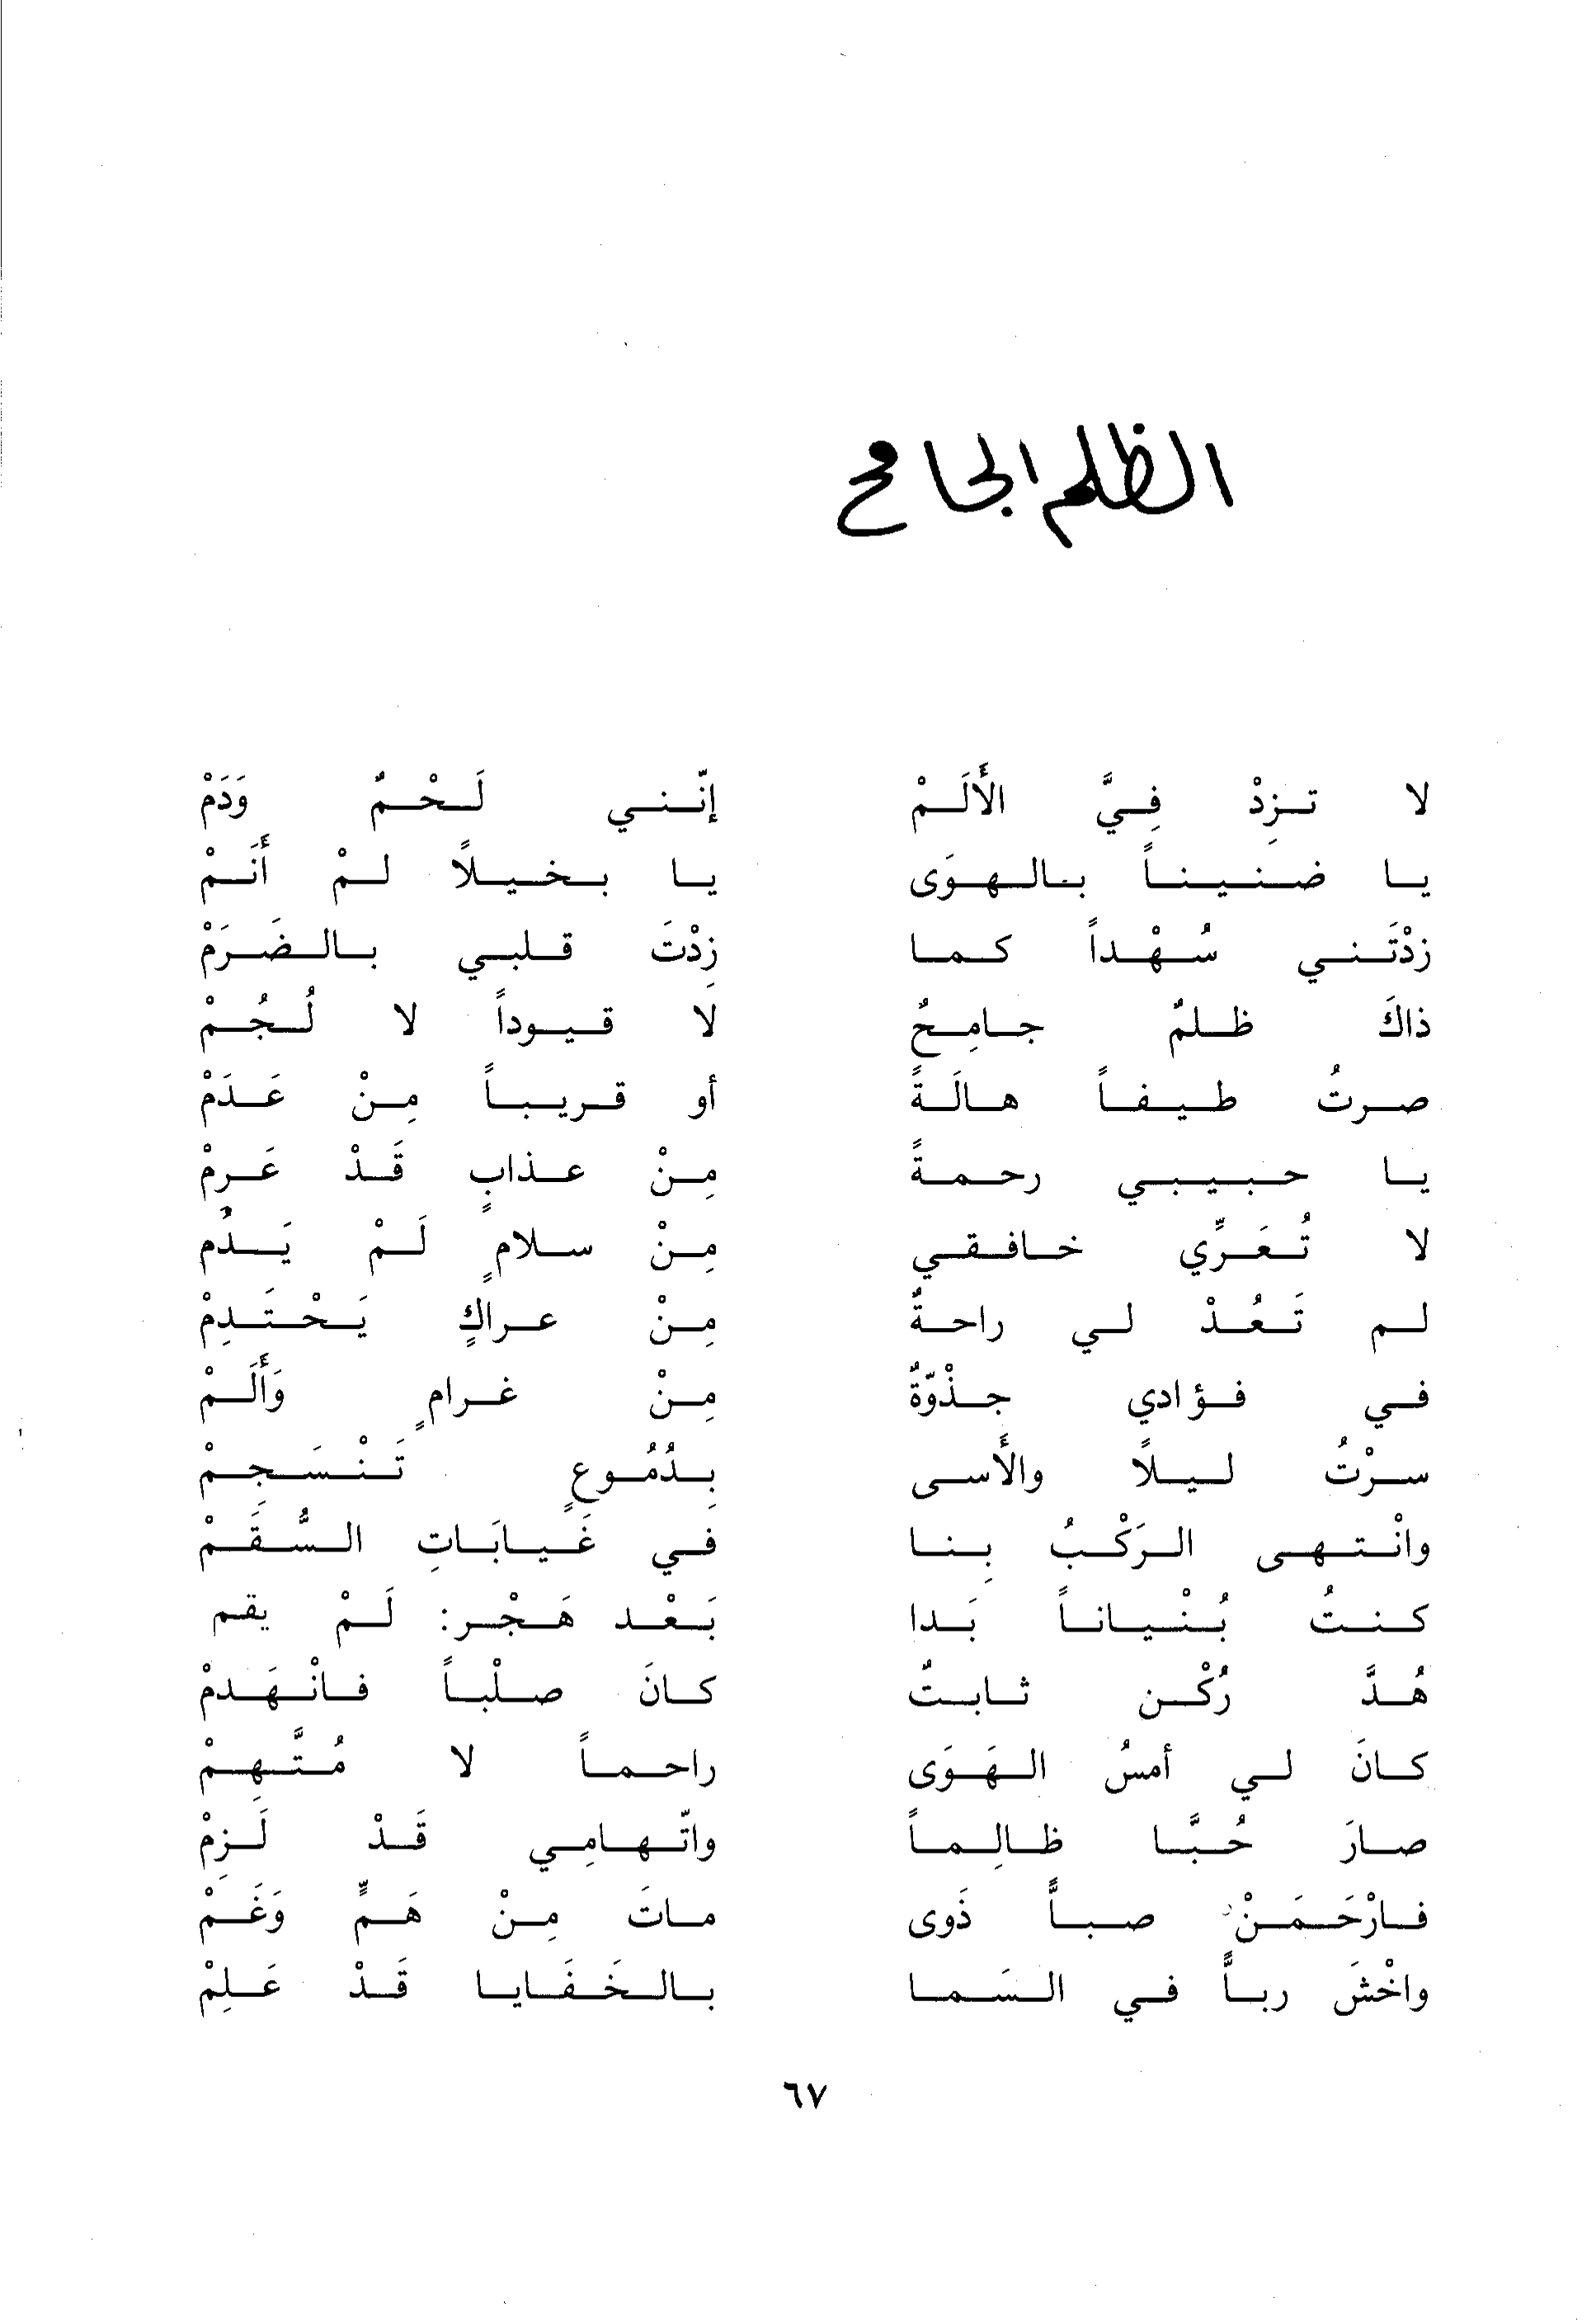 الظلم الجامح
لا تزِدْ فِيَّ الأَلَمْ إنّني لَحْمٌ وَدَمْ
يا ضنيناً بالهوَى يا بخيلاً لمْ أَنَمْ
زدْتَني سُهْداً كما زِدْتَ قلبي بالضَرَمْ
ذاكَ ظلمٌ جامِحٌ لا قيوداً لا لُجُمْ
صرتُ طيفاً هالَةً أو قريباً مِنْ عَدَمْ
يا حبيبي رحمةً مِنْ عذابٍ قَدْ عَرِمْ
لا تُعَرِّي خافقي مِنْ سلامٍ لَمْ يَدُم
لم تَعُدْ لي راحةٌ مِنْ عراكٍ يَحْتَدِمْ
في فؤادي جذْوّةٌ مِنْ غرامٍ وَأَلَمْ
سرْتُ ليلاً والأَسى بِدُمُوعٍ تَنْسَجِمْ
وانْتهى الرَكْبُ بِنا في غَيابَاتِ السُّقَمْ
كنتُ بُنْياناً بَدا بَعْد هَجْر: لَمْ يقم
هُدَّ رُكْن ثابتٌ كانَ صلْباً فانْهَدمْ
كانَ لي أمسُ الهَوَى راحماً لا مُتَّهِمْ
صارَ حُبَّا ظالِماً واتّهامِي قَدْ لَزِمْ
فارْحَمَنْ صباًّ ذَوى ماتَ مِنْ هَمٍّ وَغَمْ
واخْشَ رباًّ في السَما بالخَفَايا قَدْ عَلِمْ
٦٧